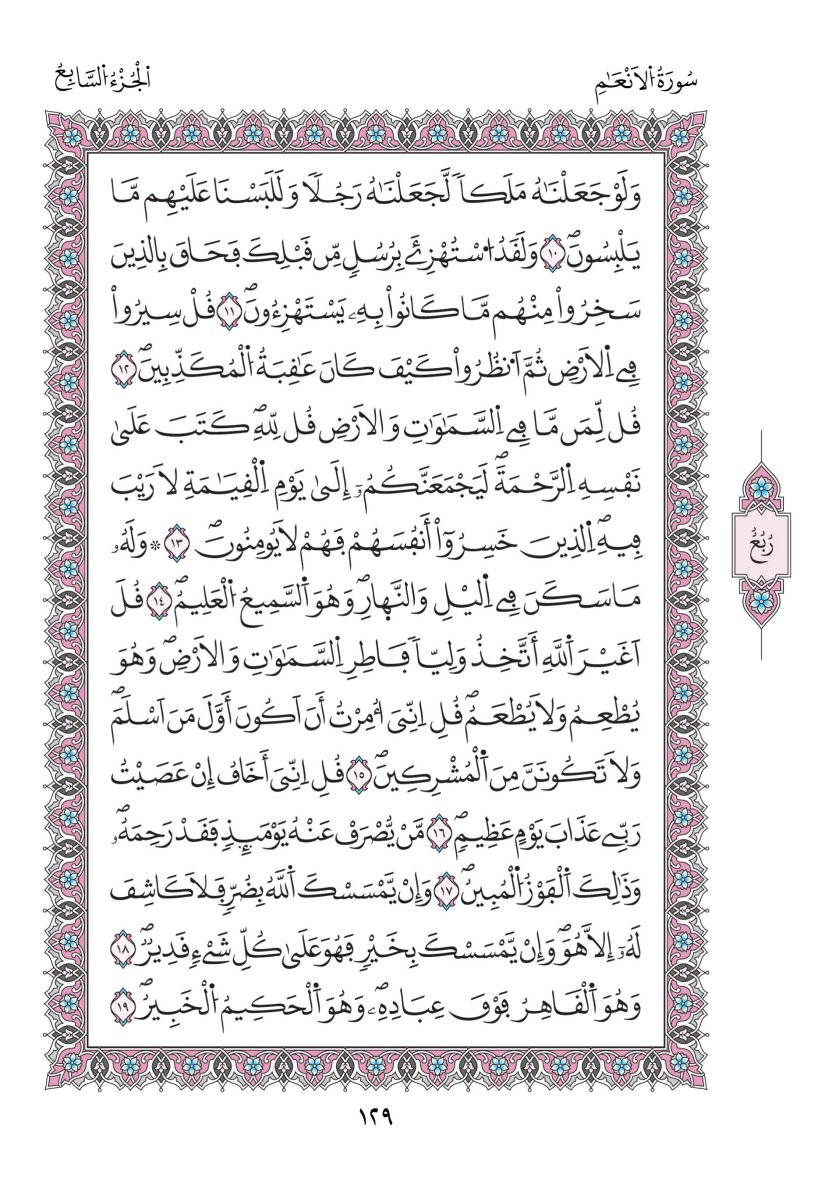 سُورَةُ اُ۬لَانْعَٰمِ
اَ۬لْجُزْءُ اُ۬لسَّابِعُ
وَلَوْ جَعَلْنَٰهُ مَلَكاٗ لَّجَعَلْنَٰهُ رَجُلٗا وَلَلَبَسْنَا عَلَيْهِم مَّا
يَلْبِسُونَۖ ١٠ وَلَقَدُ اُ۟سْتُهْزِۓَ بِرُسُلٖ مِّن قَبْلِكَ فَحَاقَ بِالذِينَ
سَخِرُواْ مِنْهُم مَّا كَانُواْ بِهِۦ يَسْتَهْزِءُونَۖ ١١ قُلْ سِيرُواْ
فِے اِ۬لَارْضِ ثُمَّ اَ۟نظُرُواْ كَيْفَ كَانَ عَٰقِبَةُ اُ۬لْمُكَذِّبِينَۖ ١٢
قُل لِّمَن مَّا فِے اِ۬لسَّمَٰوَٰتِ وَالَارْضِ قُل لِّلهِۖ كَتَبَ عَلَىٰ
نَفْسِهِ اِ۬لرَّحْمَةَۖ لَيَجْمَعَنَّكُمُۥٓ إِلَىٰ يَوْمِ اِ۬لْقِيَٰمَةِ لَا رَيْبَ
فِيهِۖ اِ۬لذِينَ خَسِرُوٓاْ أَنفُسَهُمْ فَهُمْ لَا يُومِنُونَۖ ١٣ ۞ وَلَهُۥ
مَا سَكَنَ فِے اِ۬ليْلِ وَالنَّه۪ارِۖ وَهُوَ اَ۬لسَّمِيعُ اُ۬لْعَلِيمُۖ ١٤ قُلَ
اَغَيْرَ اَ۬للَّهِ أَتَّخِذُ وَلِيّاٗ فَاطِرِ اِ۬لسَّمَٰوَٰتِ وَالَارْضِۖ وَهُوَ
يُطْعِمُ وَلَا يُطْعَمُۖ قُلِ اِنِّيَ أُمِرْتُ أَنَ اَكُونَ أَوَّلَ مَنَ اَسْلَمَۖ
وَلَا تَكُونَنَّ مِنَ اَ۬لْمُشْرِكِينَۖ ١٥ قُلِ اِنِّيَ أَخَافُ إِنْ عَصَيْتُ
رَبِّے عَذَابَ يَوْمٍ عَظِيمٖۖ ١٦ مَّنْ يُّصْرَفْ عَنْهُ يَوْمَئِذٖ فَقَدْ رَحِمَهُۥۖ
وَذَٰلِكَ اَ۬لْفَوْزُ اُ۬لْمُبِينُۖ ١٧ وَإِنْ يَّمْسَسْكَ اَ۬للَّهُ بِضُرّٖ فَلَا كَاشِفَ
لَهُۥٓ إِلَّا هُوَۖ وَإِنْ يَّمْسَسْكَ بِخَيْرٖ فَهُوَ عَلَىٰ كُلِّ شَےْءٖ قَدِيرٞۖ ١٨
وَهُوَ اَ۬لْقَاهِرُ فَوْقَ عِبَادِهِۦۖ وَهُوَ اَ۬لْحَكِيمُ اُ۬لْخَبِيرُۖ ١٩
رُبُعُ
١٢٩